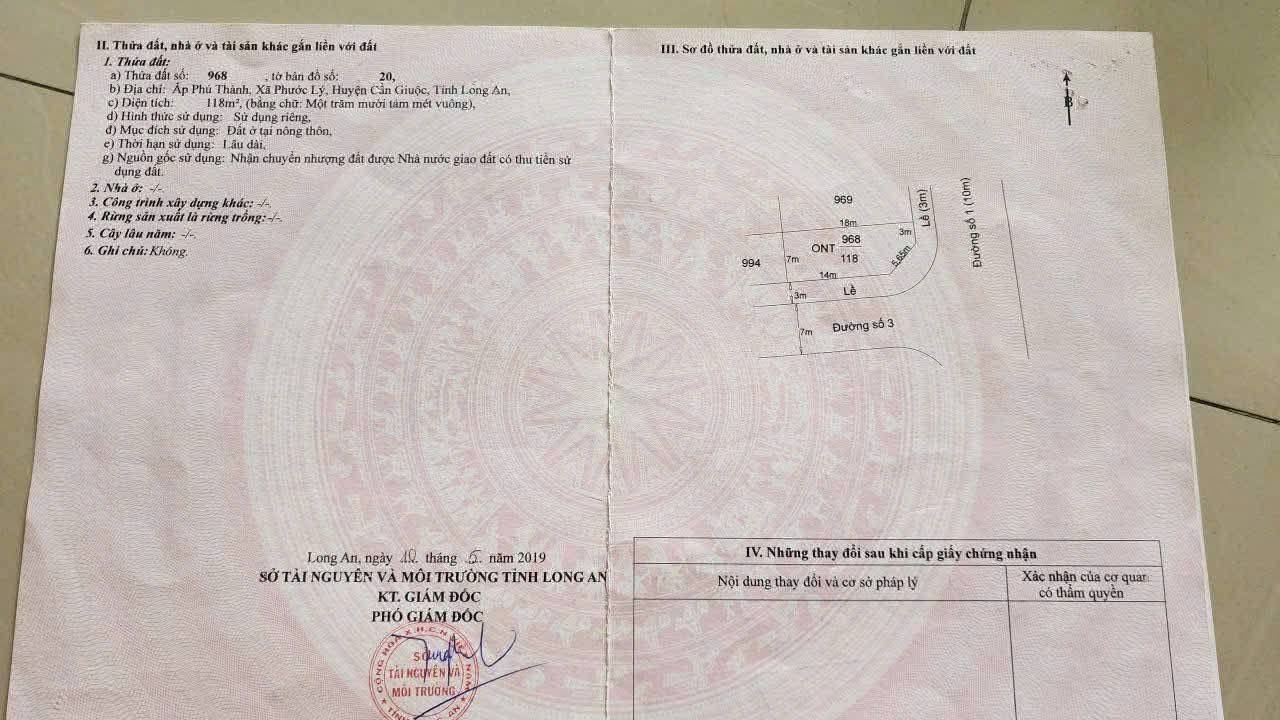 II. Thửa đất, nhà ở và tài sản khác gắn liền với đất
1. Thửa đất:
a) Thửa đất số: 968 , tờ bản đồ số: 20,
b) Địa chỉ: Ấp Phú Thành, Xã Phước Lý, Huyện Cần Giuộc, Tỉnh Long An,
c) Diện tích: 118m², (bằng chữ: Một trăm mười tám mét vuông),
d) Hình thức sử dụng: Sử dụng riêng,
đ) Mục đích sử dụng: Đất ở tại nông thôn,
e) Thời hạn sử dụng: Lâu dài,
g) Nguồn gốc sử dụng: Nhận chuyển nhượng đất được Nhà nước giao đất có thu tiền sử
dụng đất.
2. Nhà ở: -/-.
3. Công trình xây dựng khác: -/-.
4. Rừng sản xuất là rừng trồng: -/-.
5. Cây lâu năm: -/-.
6. Ghi chú: Không.
Long An, ngày tháng 5 năm 2019
SỞ TÀI NGUYÊN VÀ MÔI TRƯỜNG TỈNH LONG AN
KT. GIÁM ĐỐC
PHÓ GIÁM ĐỐC
CỘNG HÒA X.H.C.N VIỆT NAM
SỞ
TÀI NGUYÊN VÀ
MÔI TRƯỜNG
TỈNH AN
III. Sơ đồ thửa đất, nhà ở và tài sản khác gắn liền với đất
B
969
18m
3m
Lề (3m)
Đường số 1 (10m)
ONT
968
118
994
7m
5.65m
14m
3m
Lề
7m
Đường số 3
IV. Những thay đổi sau khi cấp giấy chứng nhận
Nội dung thay đổi và cơ sở pháp lý
Xác nhận của cơ quan
có thẩm quyền